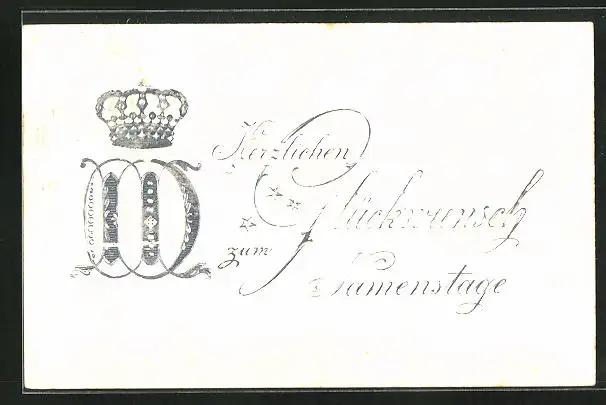 Herzlichen
Glückwunsch
zum
Namenstage